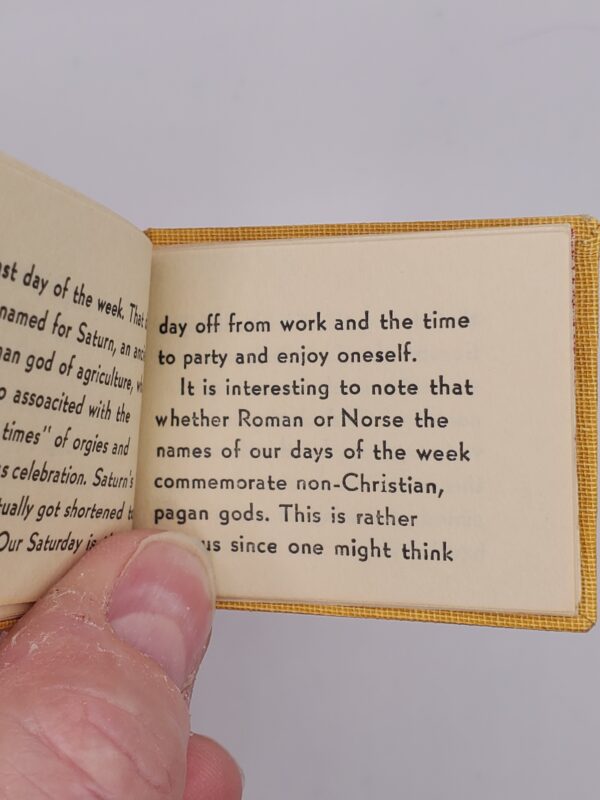 day of the week. That
named for Saturn, an
god of agriculture,
assoacited with the
times" of orgies and
celebration. Saturn's
got shortened
Our Saturday is
day off from work and the time
to party and enjoy oneself.
It is interesting to note that
whether Roman or Norse the
names of our days of the week
commemorate non-Christian,
pagan gods. This is rather
since one might think